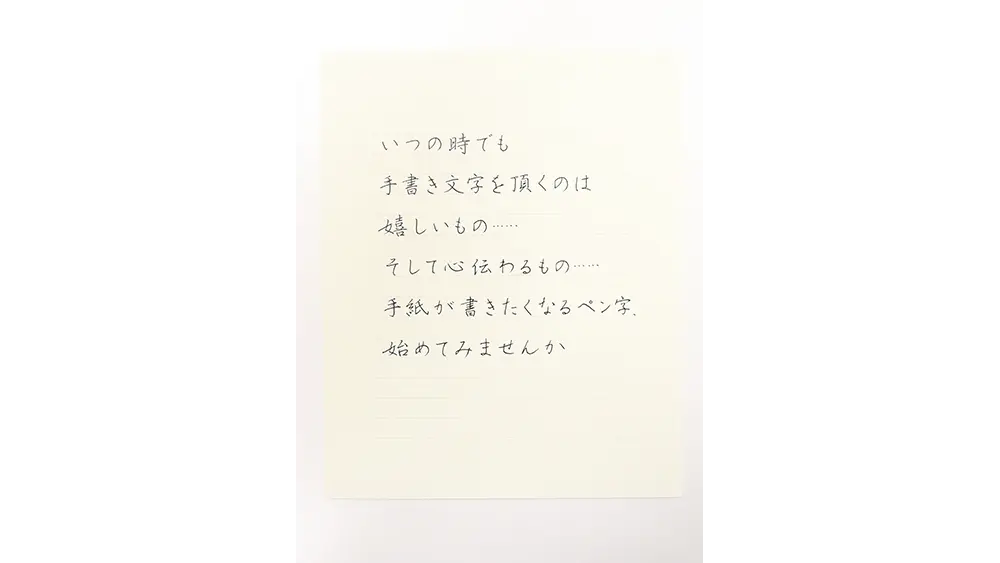 いつの時でも
手書き文字を頂くのは
嬉しいもの……
そして心伝わるもの……
手紙が書きたくなるペン字、
始めてみませんか